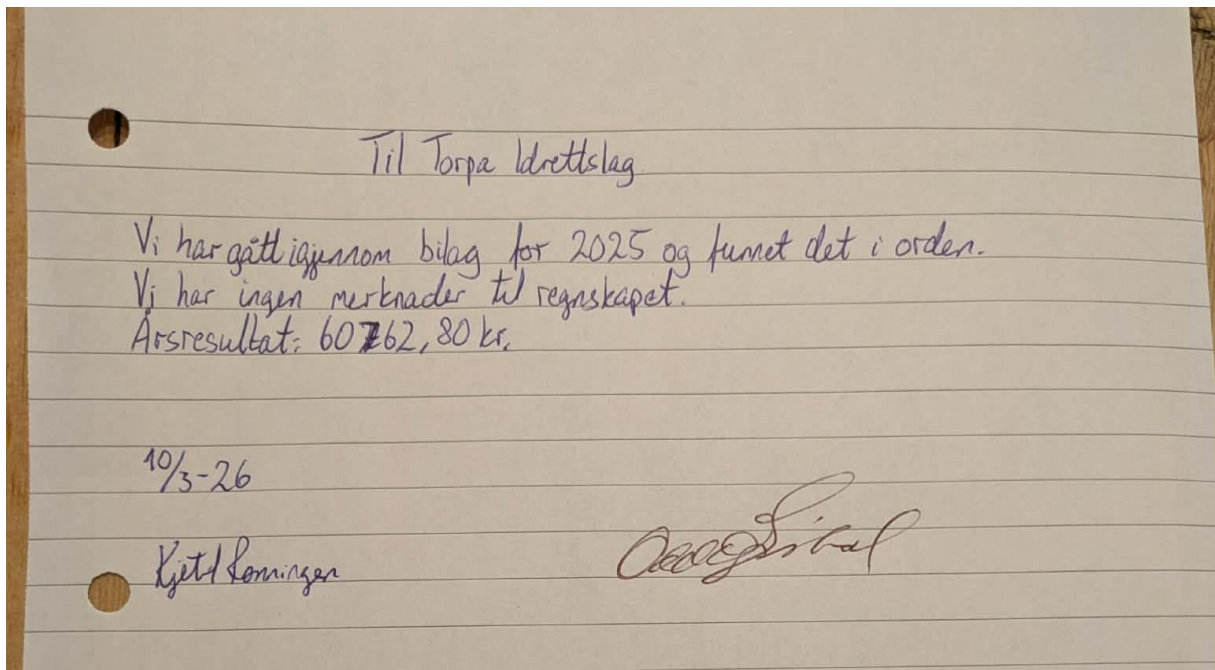 Til Torpa Idrettslag
Vi har gått igjennom bilag for 2025 og funnet det i orden.
Vi har ingen merknader til regnskapet.
Årsresultat: 60762,80 kr.
10/3-26
Kjetil Rønningen